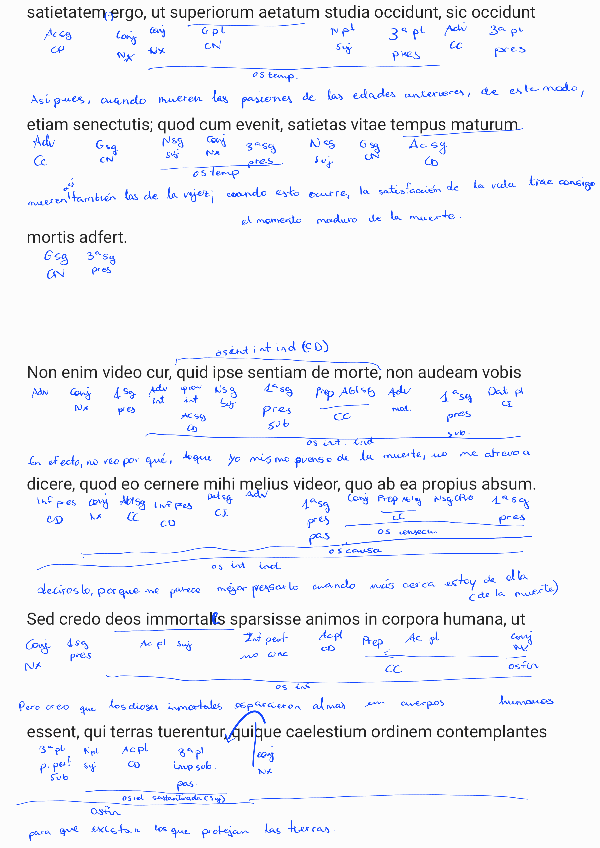 satietatem ergo, ut superiorum aetatum studia occidunt, sic occidunt
Acsg conj conj Gpl Npl 3ª pl Adv 3ª pl
CD NX NX CN Suj pres CC pres
os temp.
Así pues, cuando mueren las pasiones de las edades anteriores, de este modo,
etiam senectutis; quod cum evenit, satietas vitae tempus maturum.
Adv Gsg Nsg Conj 3ª sg Nsg Gsg Ac. sg
CC CN Suj NX pres. Suj. CN CD
os temp
mueren también las de la vejez; cuando esto ocurre, la satisfacción de la vida trae consigo
el momento maduro de la muerte.
mortis adfert.
Gsg 3ª sg
CN pres
os int int ind (CD)
Non enim video cur, quid ipse sentiam de morte, non audeam vobis
Adv Conj 1ª sg Adv pron Nsg 1ª sg Prep Ablsg Adv 1ª sg Dat pl
NX pres int int Suj pres CC mod. pres CI
Acsg sub sub.
CD
os int ind
En efecto, no veo por qué, lo que yo mismo pienso de la muerte, no me atrevo a
dicere, quod eo cernere mihi melius videor, quo ab ea propius absum.
Inf pres conj Ablsg Inf pres Datsg Adv 1ª sg Conj Prep Ablsg 1ª sg
CD NX CC CD CI pres CC pres
pas os consecu.
os causa
os int ind
deciroslo, porque me parece mejor pensarlo cuando más cerca estoy de ella
(de la muerte)
Sed credo deos immortales sparsisse animos in corpora humana, ut
Conj 1sg Ac pl Suj Inf perf Acpl Prep Ac pl. Conj
NX pres no conc CD CC NX
os fin
os inf
Pero creo que los dioses inmortales esparcieron almas en cuerpos humanos
essent, qui terras tuerentur, quique caelestium ordinem contemplantes
3ª pl Npl Acpl 3ª pl conj
Suj CD imp sub. NX
sub pas.
os rel sustantivada (Suj)
Os fin
para que existan los que protejan las tierras.